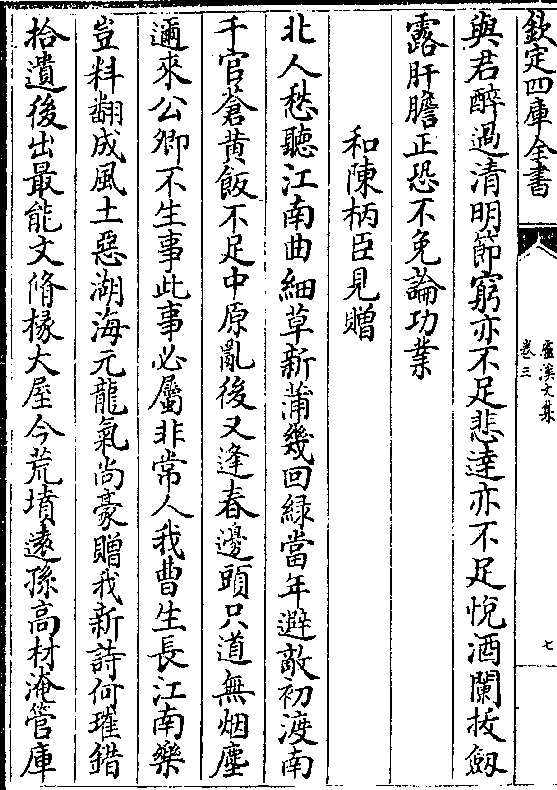 欽定四庫全書
盧溪文集
卷三
七
與君醉過清明節窮亦不足悲達亦不足悅酒闌拔劔
露肝膽正恐不免論功業
和陳柄臣見贈
北人愁聽江南曲細草新蒲幾回緑當年避敵初渡南
千官蒼黄飯不足中原亂後又逢春邊頭只道無烟塵
邇來公卿不生事此事必屬非常人我曹生長江南樂
豈料翻成風土惡湖海元龍氣尚豪贈我新詩何璀錯
拾遺後出最能文脩椽大屋今荒墳逺孫高材淹管庫